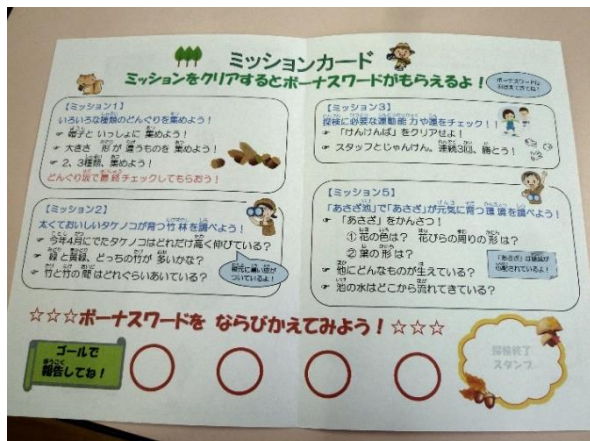 ミッションカード
ミッションをクリアするとボーナスワードがもらえるよ！
【ミッション1】
いろいろな種類のどんぐりを集めよう！
☞ 帽子と いっしょに 集めよう！
☞ 大きさ 形が 違うものを 集めよう！
☞ 2、3種類、集めよう！
どんぐり坂で 最終チェックしてもらおう！
【ミッション2】
太くておいしいタケノコが育つ竹林を調べよう！
☞ 今年4月にでたタケノコはどれだけ高く伸びている？
☞ 緑と黄緑、どっちの竹が 多いかな？
☞ 竹と竹の間はどれぐらいあいている？
ついているよ！
【ミッション3】
探検に必要な運動能力や運をチェック！！
☞ 「けんけんぱ」をクリアせよ！
☞ スタッフとじゃんけん。連続3回、勝とう！
【ミッション5】
「あさざ池」で「あさざ」が元気に育つ環境を調べよう！
☞ 「あさざ」をかんさつ！
① 花の色は？ 花びらの周りの形は？
② 葉の形は？
☞ 他にどんなものが生えている？
☞ 池の水はどこから流れてきている？
「あさざ」は絶滅が
心配されているよ！
☆☆☆ボーナスワードを ならびかえてみよう！☆☆☆
ゴールで
報告してね！
探検終了
スタンプ